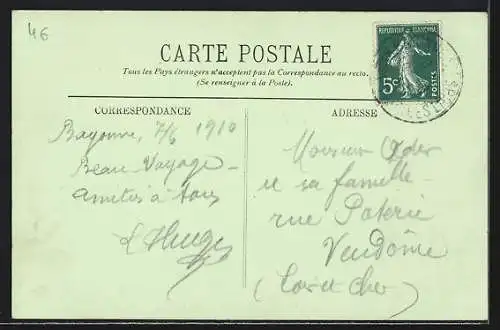 46
CARTE POSTALE
Tous les Pays étrangers n'acceptent pas la Correspondance au recto.
(Se renseigner à la Poste).
REPUBLIQUE FRANÇAISE
5c
POSTES
CORRESPONDANCE
Bayonne, 7/6 1910
Beau Voyage
Amitiés à tous
ADRESSE
Monsieur
et sa famille
rue Poterie
Vendôme
Loir et Cher